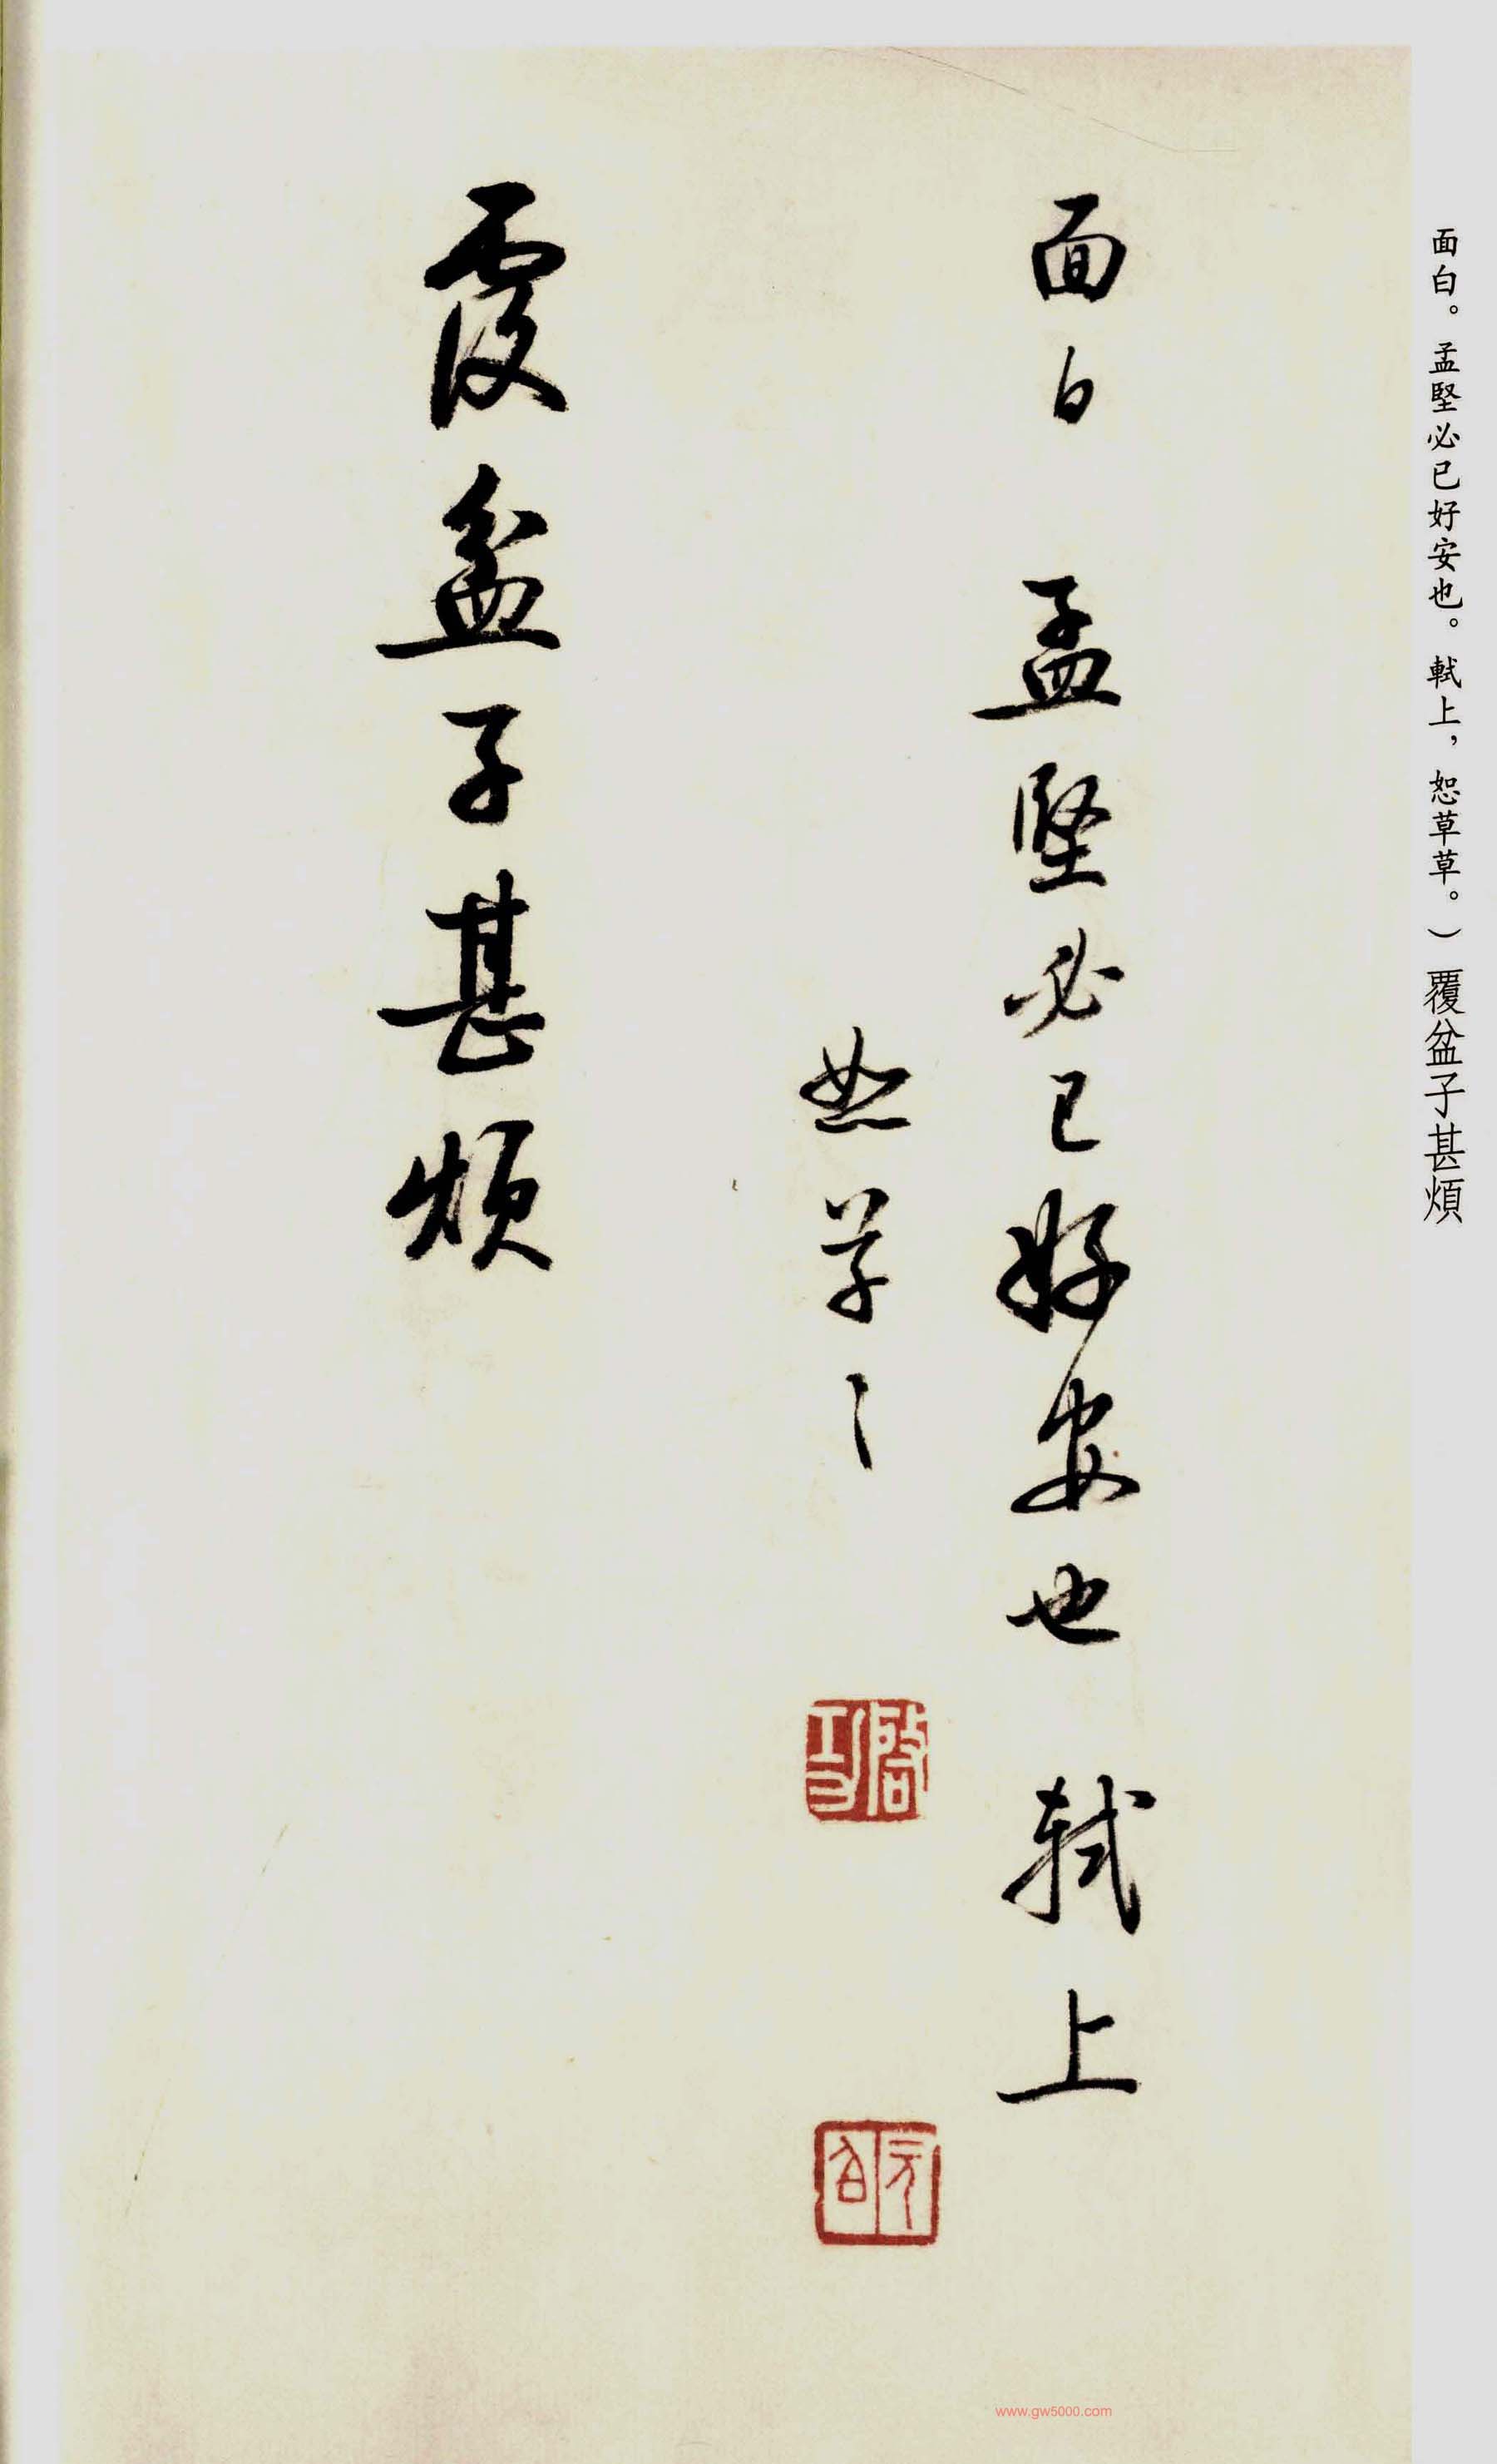 面白。孟堅必已好安也。軾上，恕草草。）覆盆子甚煩
面白 孟堅必已好安也 軾上
恕草〻
覆盆子甚煩
啓功
元白
www.gw5000.com